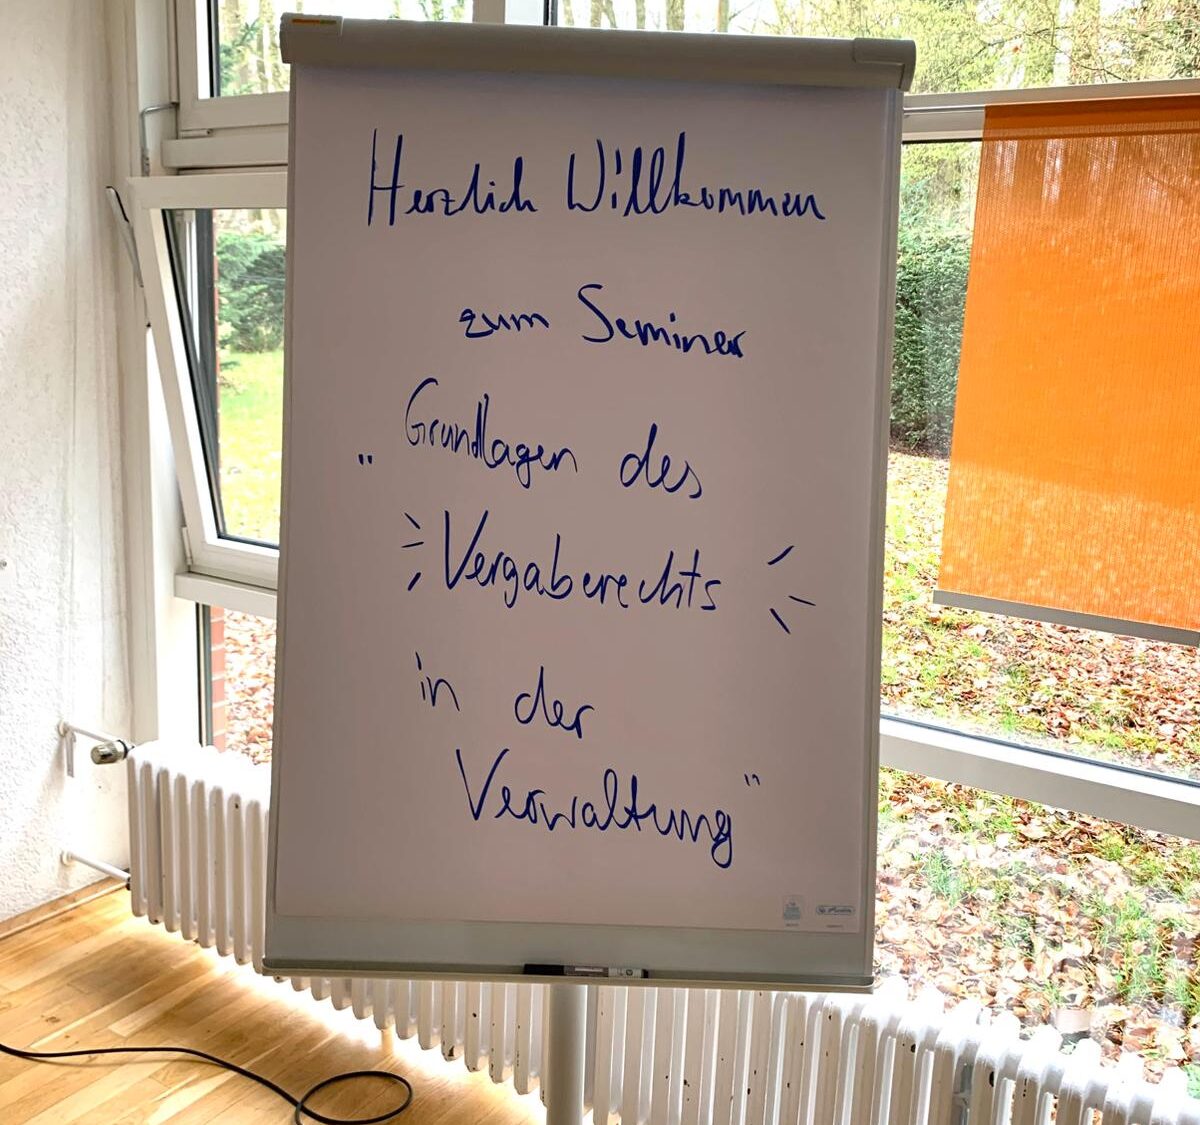 Herzlich Willkommen
zum Seminar
„Grundlagen des
Vergaberechts
in der
Verwaltung"